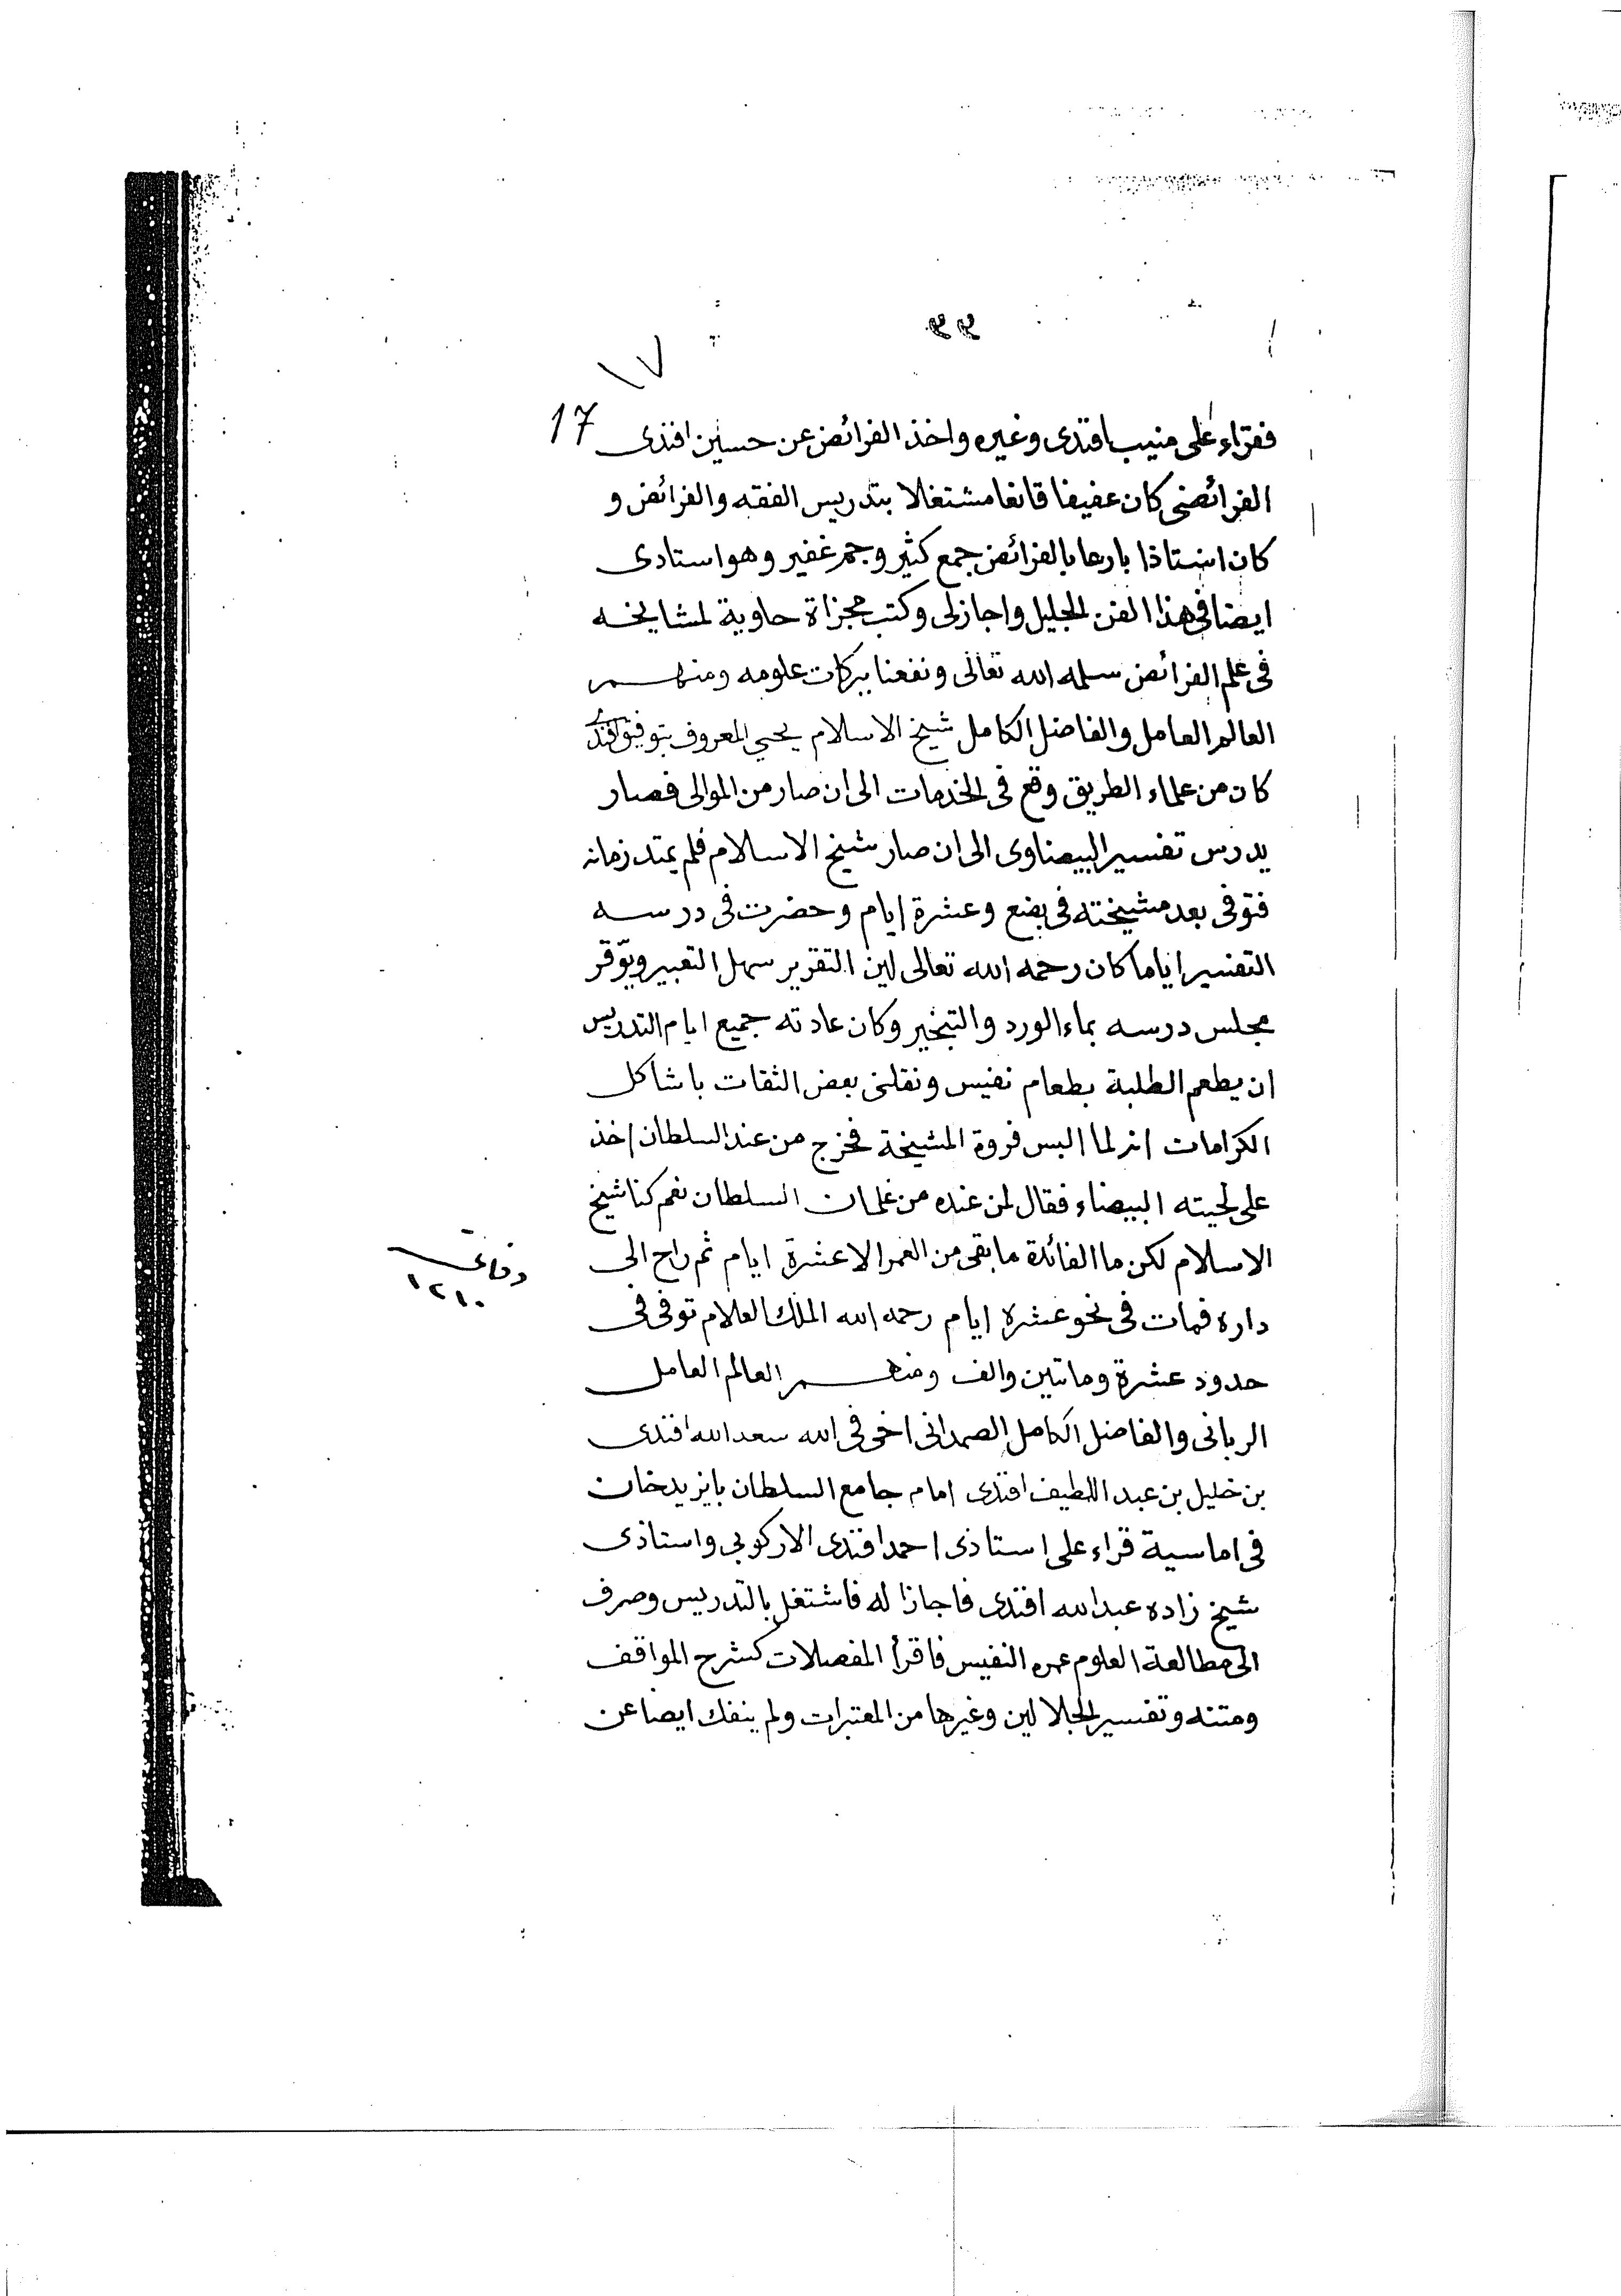 ١٧
17
فقراء على منيب افندى وغيره واخذ الفرائض عن حسين افندى
الفرائضى كان عفيفا قانعا مشتغلا بتدريس الفقه والفرائض و
كان استاذا بارعا بالفرائض جمع كثير وجم غفير وهو استادى
ايضا فى هذا الفن الجليل واجازلى وكتب مجزاة حاوية لمشايخه
فى علم الفرائض سلمه الله تعالى ونفعنا ببركات علومه ومنهم
العالم العامل والفاضل الكامل شيخ الاسلام يحيى المعروف بتوفيق افندى
كان من علماء الطريق وقع فى الخدمات الى ان صار من الموالى فصار
يدرس تفسير البيضاوى الى ان صار شيخ الاسلام فلم يمتد زمانه
فتوفى بعد مشيخته فى بضع وعشرة ايام وحضرت فى درسه
التفسير اياما كان رحمه الله تعالى لين التقرير سهل التعبير ويوّقر
مجلس درسه بماء الورد والتبخير وكان عادته جميع ايام التدريس
ان يطعم الطلبة بطعام نفيس ونقلنى بعض الثقات باشاكل
الكرامات انه لما البس فروة المشيخة فخرج من عند السلطان اخذ
على لحيته البيضاء فقال لمن عنده من غلمان السلطان نعم كنا شيخ
الاسلام لكن ما الفائدة ما بقى من العمر الا عشرة ايام ثم راح الى
وفاتى
١٢١٠
داره فمات فى نحو عشرة ايام رحمه الله الملك العلام توفى فى
حدود عشرة وماتين والف ومنهم العالم العامل
الربانى والفاضل الكامل الصمدانى اخى فى الله سعد الله افندى
بن خليل بن عبد اللطيف افندى امام جامع السلطان بايزيد خان
فى اماسية قراء على استاذى احمد افندى الاركوبى واستاذى
شيخ زاده عبد الله افندى فاجازا له فاشتغل بالتدريس وصرف
الى مطالعة العلوم عمره النفيس فاقرأ المفصلات كشرح المواقف
ومتنه وتفسير الجلالين وغيرها من المعتبرات ولم ينفك ايضا عن